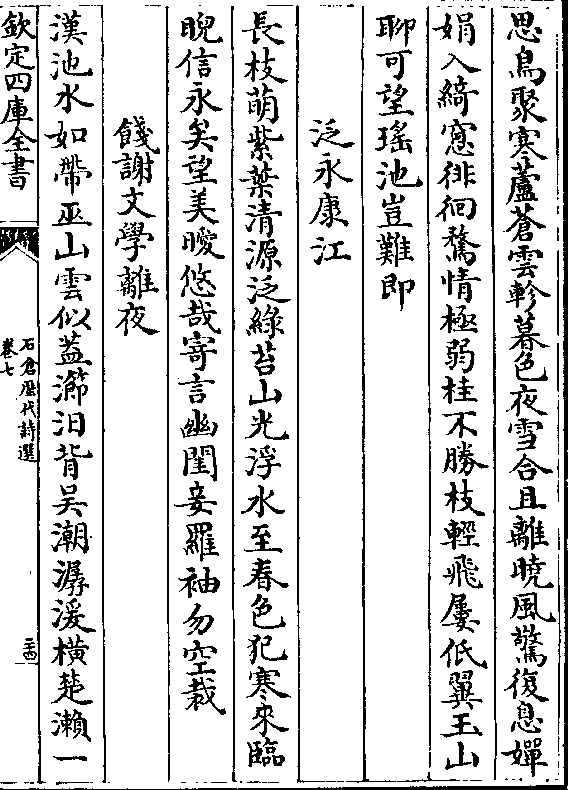 思鳥聚寒蘆蒼雲軫暮色夜雪合且離曉風驚復息嬋
娟入綺窻徘徊騖情極弱桂不勝枝輕飛屢低翼玉山
聊可望瑤池豈難即
泛永康江
長枝萌紫葉清源泛綠苔山光浮水至春色犯寒來臨
睨信永矣望美曖悠哉寄言幽閨妾羅袖勿空裁
餞謝文學離夜
漢池水如帶巫山雲似蓋瀄汨背吳潮潺湲横楚瀨一
欽定四庫全書
石倉歷代詩選
卷七
三四